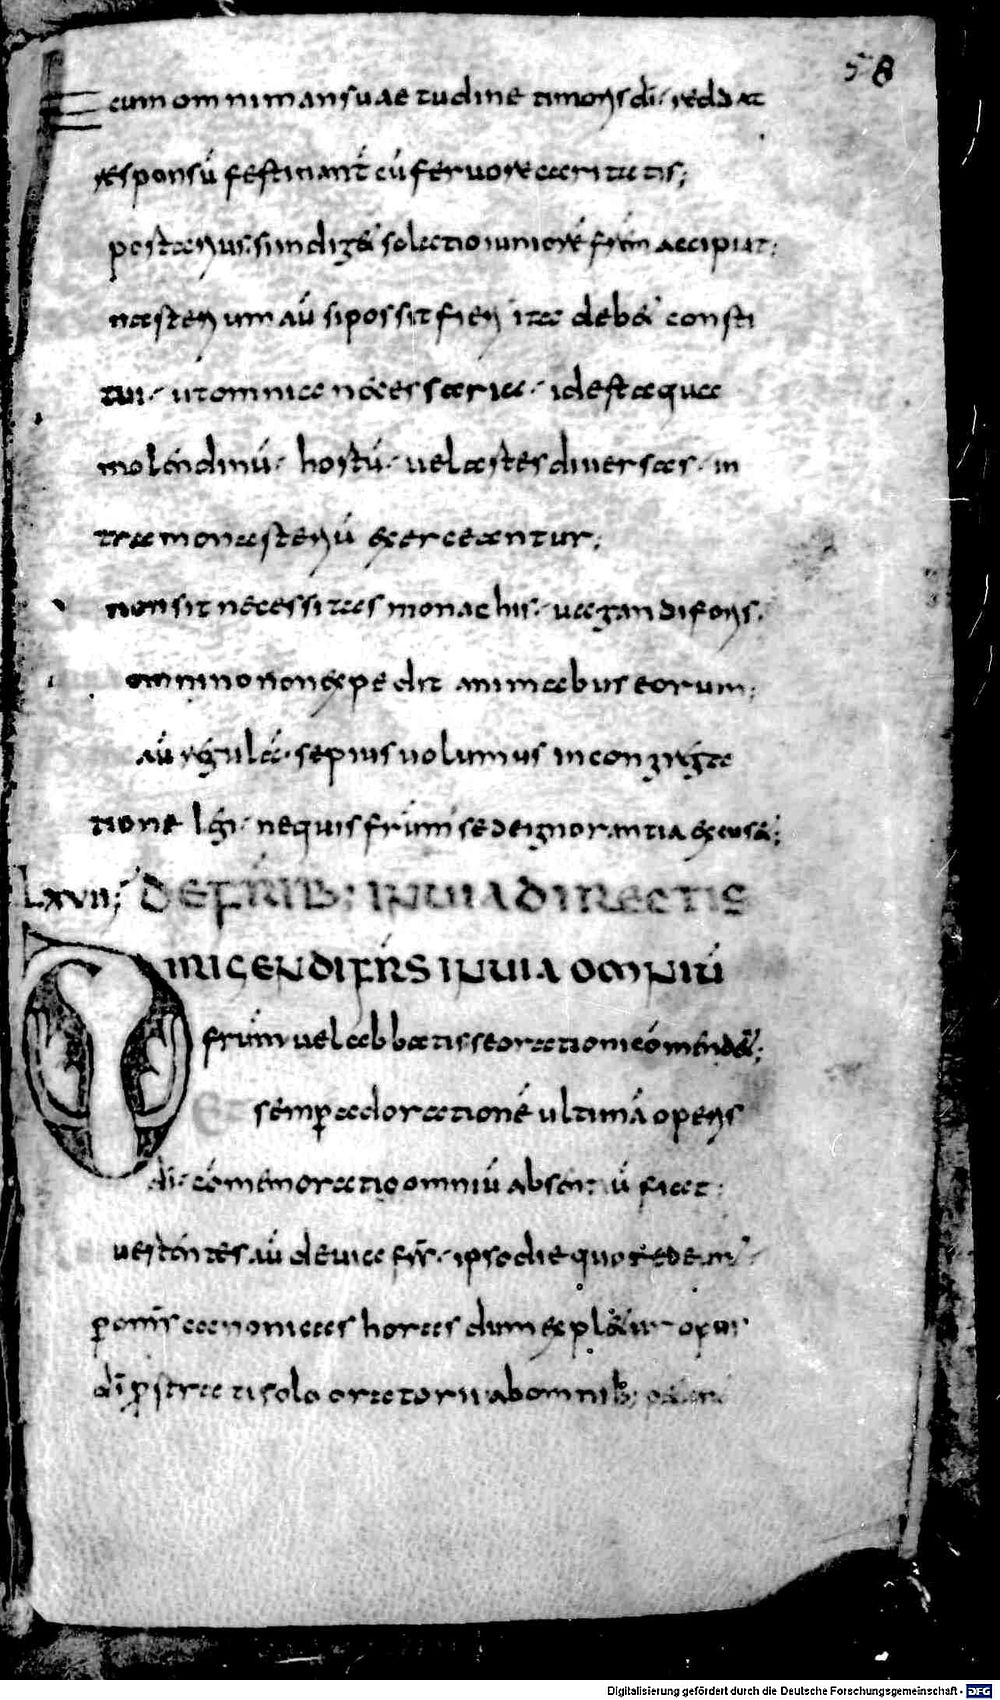 58
cum omni mansuaetudine timoris dī· reddat
responsū festinant̄ cū feruore caritatis;
portarius si indiget solatio iuniorē frēm accipiat;
nasterium aū si possit fieri ita debet consti
tui· ut omnia necessaria· id est aqua
molendinū· hostū· uel artes diuersas· in
tra monasteriū exerceantur;
non sit necessitas monachis· uagandi foris·
omnino non expedit animabus eorum;
aū regulā· sepius uolumus in congrega
tione legi· ne quis frūm se de ignorantia excuset;
LXVII; DE FRIB; IN UIA DIRECTIS
DIRIGENDI FRS IN UIA OMNIŪ
frūm uel abbatis se orationi cōmendet;
ET semper ad orationē ultimā operis
dī· cōmemoratio omniū absentū fiat;
uertentes aū de uia frs· ipso die quo redeunt
per omnes canonicas horas dum expletur opus
dī prstrati solo oratorii ab omnib; petant
Digitalisierung gefördert durch die Deutsche Forschungsgemeinschaft - DFG